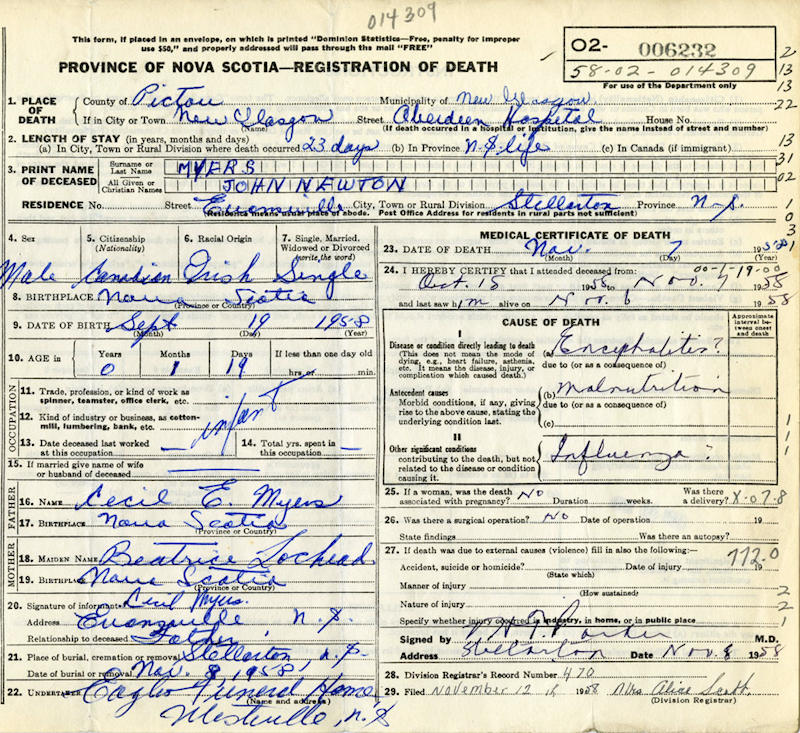 014309
This form, if placed in an envelope, on which is printed "Dominion Statistics—Free, penalty for improper
use $50," and properly addressed will pass through the mail "FREE"
PROVINCE OF NOVA SCOTIA—REGISTRATION OF DEATH
02- 006232
58-02-014309
For use of the Department only
2
13
13
22
13
31
02
1
0
3
1. PLACE OF DEATH
County of Pictou Municipality of New Glasgow
If in City or Town New Glasgow Street Aberdeen Hospital House No.
(Name) (If death occurred in a hospital or institution, give the name instead of street and number)
2. LENGTH OF STAY (in years, months and days)
(a) In City, Town or Rural Division where death occurred 23 days (b) In Province N.S. life (c) In Canada (if immigrant)
3. PRINT NAME OF DECEASED
Surname or Last Name MYERS
All Given or Christian Names JOHN NEWTON
RESIDENCE No. Street Evansville City, Town or Rural Division Stellarton Province N.S.
(Residence means usual place of abode. Post Office Address for residents in rural parts not sufficient)
4. Sex 5. Citizenship (Nationality) 6. Racial Origin 7. Single, Married, Widowed or Divorced (write the word)
Male Canadian Irish Single
8. BIRTHPLACE Nova Scotia
(Province or Country)
9. DATE OF BIRTH Sept 19 1958
(Month) (Day) (Year)
10. AGE in Years Months Days If less than one day old
0 1 19 hrs. or min.
OCCUPATION
11. Trade, profession, or kind of work as
spinner, teamster, office clerk, etc.
12. Kind of industry or business, as cotton-
mill, lumbering, bank, etc.
infant
13. Date deceased last worked
at this occupation
14. Total yrs. spent in
this occupation
15. If married give name of wife
or husband of deceased
FATHER
16. NAME Cecil E. Myers
17. BIRTHPLACE Nova Scotia
(Province or Country)
MOTHER
18. MAIDEN NAME Beatrice Lochead
19. BIRTHPLACE Nova Scotia
(Province or Country)
20. Signature of informant Cecil Myers.
Address Evansville N.S.
Relationship to deceased Father
21. Place of burial, cremation or removal Stellarton, N.S.
Date of burial or removal Nov. 8, 1958
22. UNDERTAKER Eagles Funeral Home
(Name and address)
Westville, N.S
MEDICAL CERTIFICATE OF DEATH
23. DATE OF DEATH Nov. 7 1958
(Month) (Day) (Year)
24. I HEREBY CERTIFY that I attended deceased from:
Oct. 15 1958 to Nov. 7 1958
and last saw him alive on Nov. 6 1958
CAUSE OF DEATH
Approximate interval between onset and death
I
Disease or condition directly leading to death
(This does not mean the mode of
dying, e.g., heart failure, asthenia,
etc. It means the disease, injury, or
complication which caused death.)
(a) Encephalitis?
due to (or as a consequence of)
Antecedent causes
Morbid conditions, if any, giving
rise to the above cause, stating the
underlying condition last.
(b) Malnutrition
due to (or as a consequence of)
(c)
II
Other significant conditions
contributing to the death, but not
related to the disease or condition
causing it.
Influenza?
1
1
1
25. If a woman, was the death
associated with pregnancy? No Duration weeks. Was there
a delivery? X-07-8
26. Was there a surgical operation? No Date of operation 19
State findings Was there an autopsy?
27. If death was due to external causes (violence) fill in also the following:—
772.0
Accident, suicide or homicide? Date of injury 19
(State which)
Manner of injury
(How sustained)
2
Nature of injury
2
Specify whether injury occurred in industry, in home, or in public place
1
Signed by Parker M.D.
Address Stellarton Date Nov. 8 1958
28. Division Registrar's Record Number 470
29. Filed November 12 1958 Mrs Alice Scott
(Division Registrar)